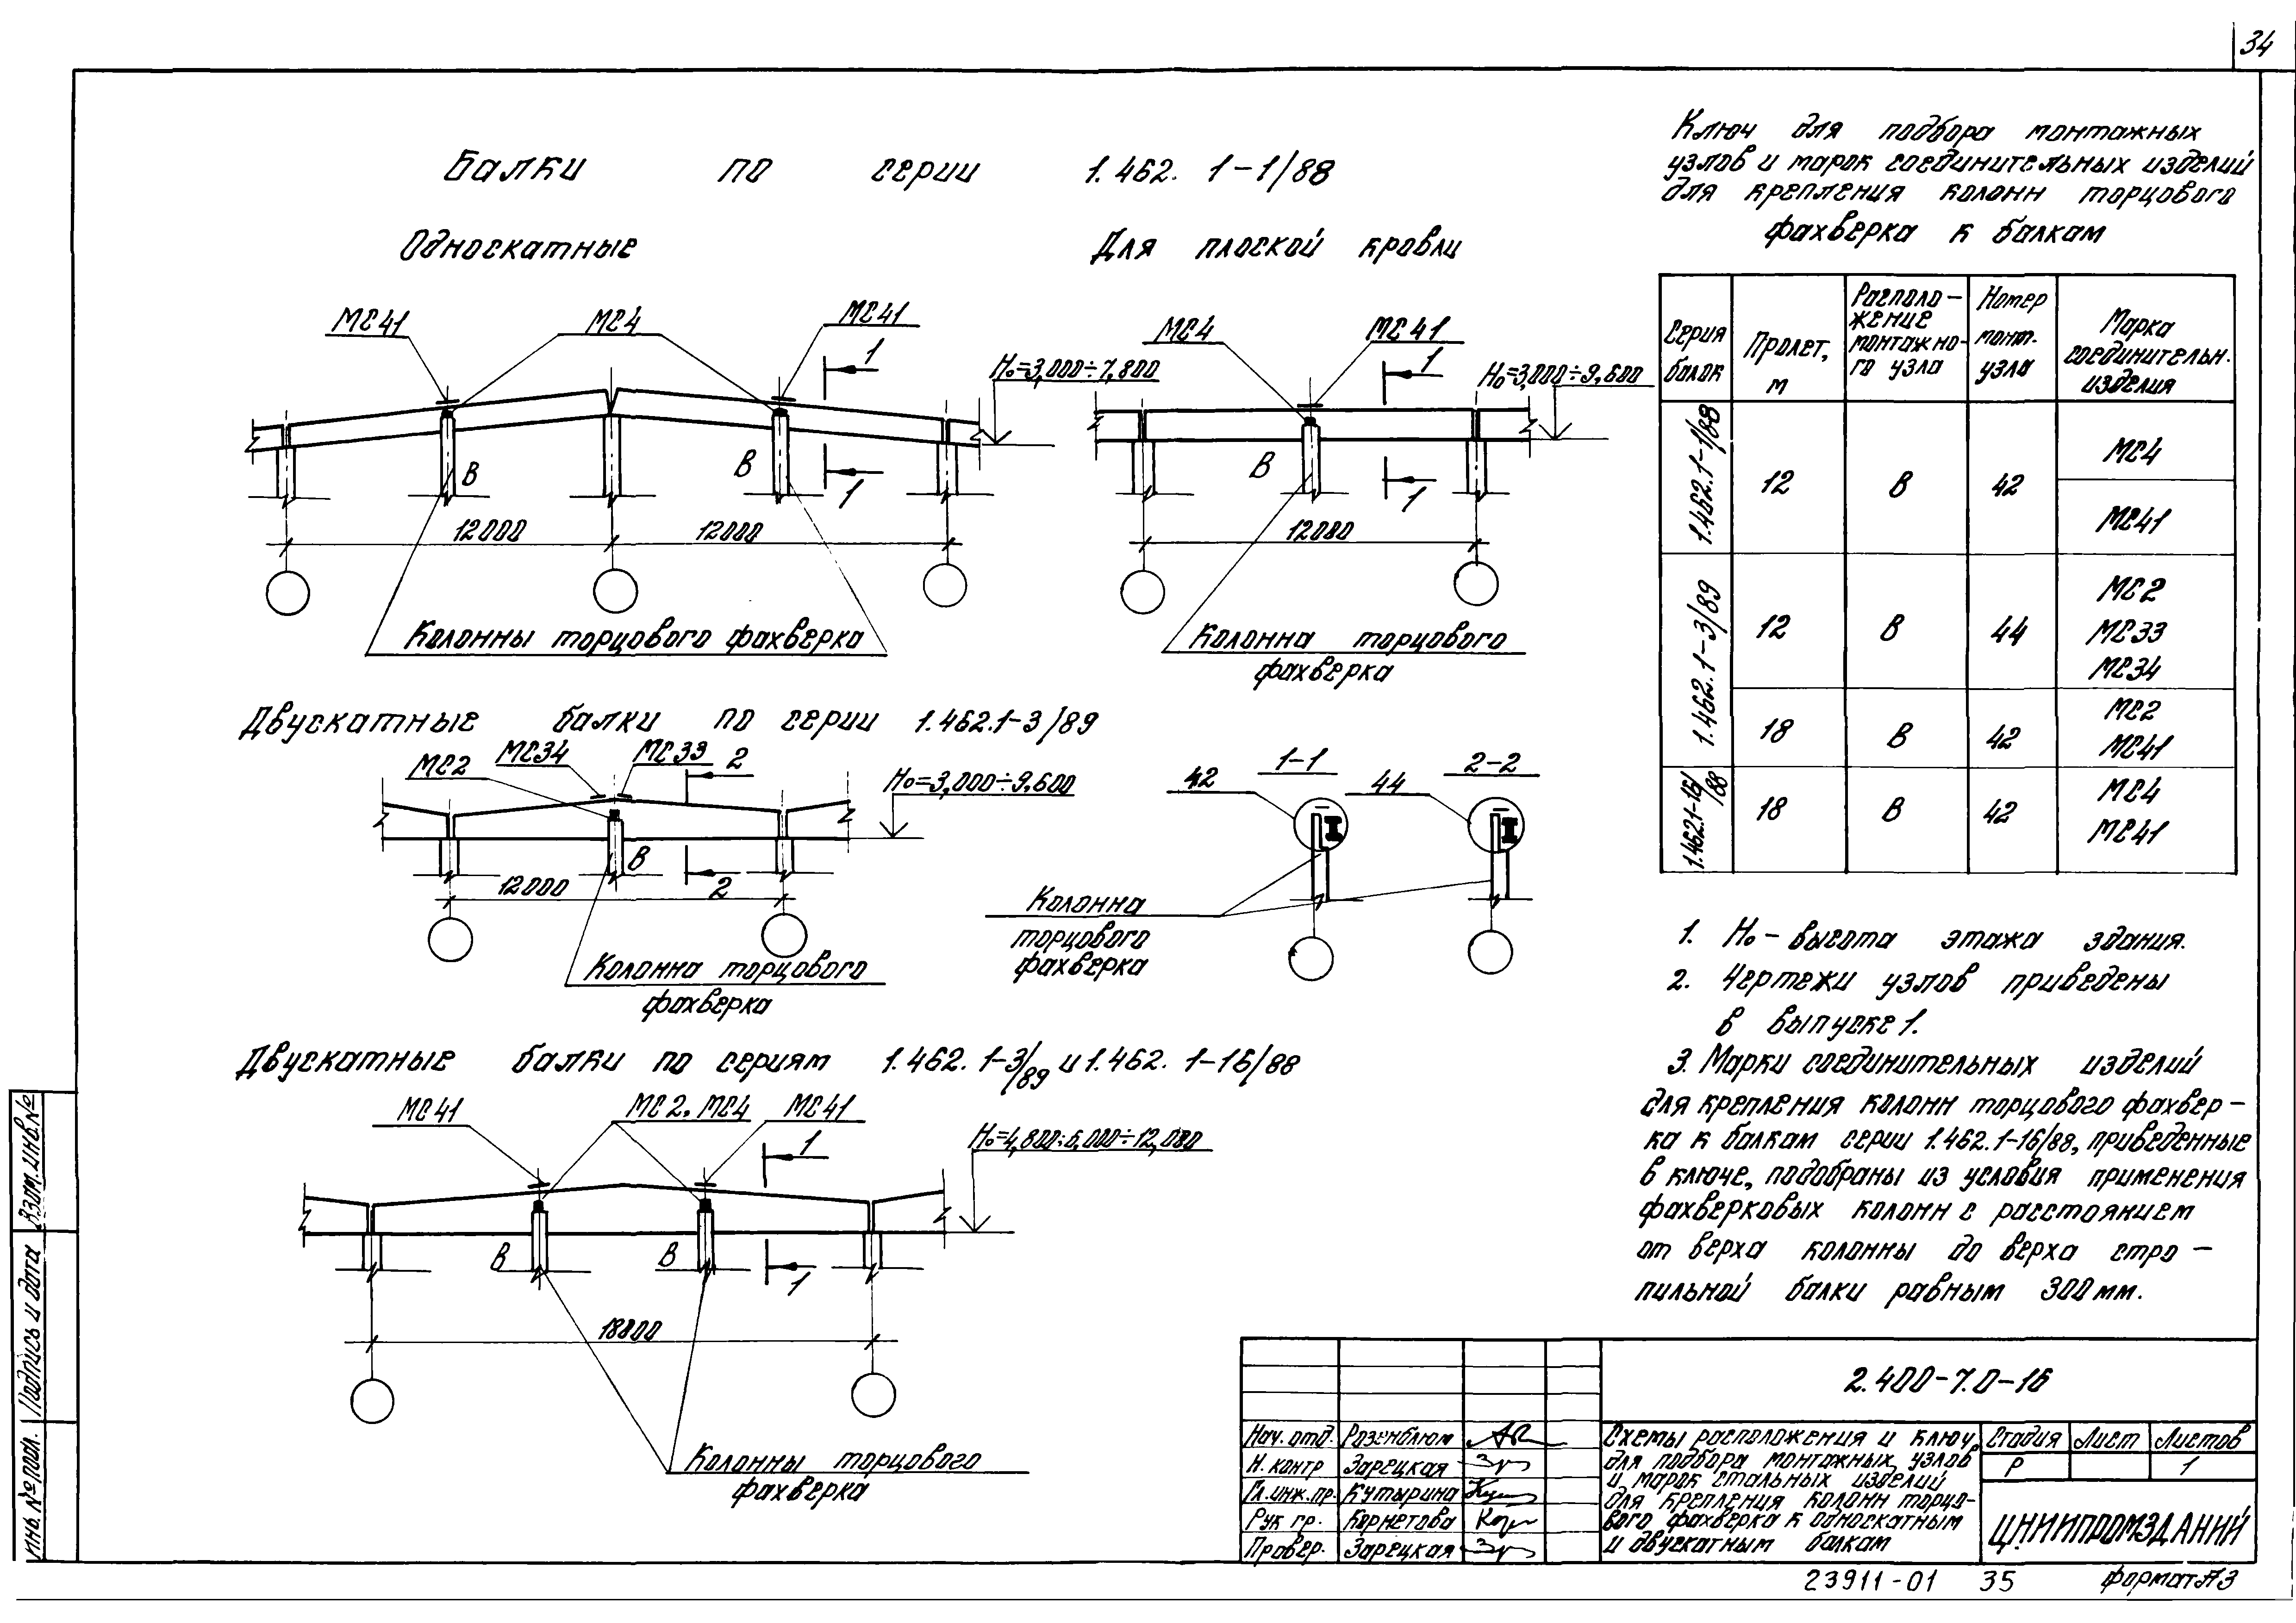 34
Балки по серии 1.462.1-1/88
Односкатные
Для плоской кровли
МС41
МС4
МС41
1
Н₀=3,000÷7,800
В
В
1
12000
12000
Колонны торцового фахверка
МС4
МС41
1
Н₀=3,000÷9,600
В
1
12000
Колонна торцового
фахверка
Двускатные балки по серии 1.462.1-3/89
МС2
МС34
МС33
2
Н₀=3,000÷9,600
В
2
12000
Колонна торцового
фахверка
1-1
2-2
42
44
Колонна
торцового
фахверка
Двускатные балки по сериям 1.462.1-3/89 и 1.462.1-16/88
МС41
МС2, МС4
МС41
1
Н₀=4,800; 6,000÷12,000
В
В
1
18000
Колонны торцового
фахверка
Ключ для подбора монтажных
узлов и марок соединительных изделий
для крепления колонн торцового
фахверка к балкам
Серия балок
Пролет, м
Располо-
жение
монтажно-
го узла
Номер
монт.
узла
Марка
соединительн.
изделия
1.462.1-1/88
12 В 42
МС4
МС41
1.462.1-3/89
12 В 44
МС2
МС33
МС34
18 В 42
МС2
МС41
1.462.1-16/88
18 В 42
МС4
МС41
1. Н₀ - высота этажа здания.
2. Чертежи узлов приведены
в выпуске 1.
3. Марки соединительных изделий
для крепления колонн торцового фахвер-
ка к балкам серии 1.462.1-16/88, приведенные
в ключе, подобраны из условия применения
фахверковых колонн с расстоянием
от верха колонны до верха стро-
пильной балки равным 300 мм.
Взам. инв. №
Подпись и дата
Инв. № подл.
2.400-7.0-16
Нач. отд. Розенблюм
Н. контр Зарецкая
Гл. инж. пр. Кутырина
Рук гр. Корнетова
Провер. Зарецкая
Схемы расположения и ключ
для подбора монтажных узлов
и марок стальных изделий
для крепления колонн торцо-
вого фахверка к односкатным
и двускатным балкам
Стадия Лист Листов
Р 1
ЦНИИПРОМЗДАНИЙ
23911-01 35 Формат А3